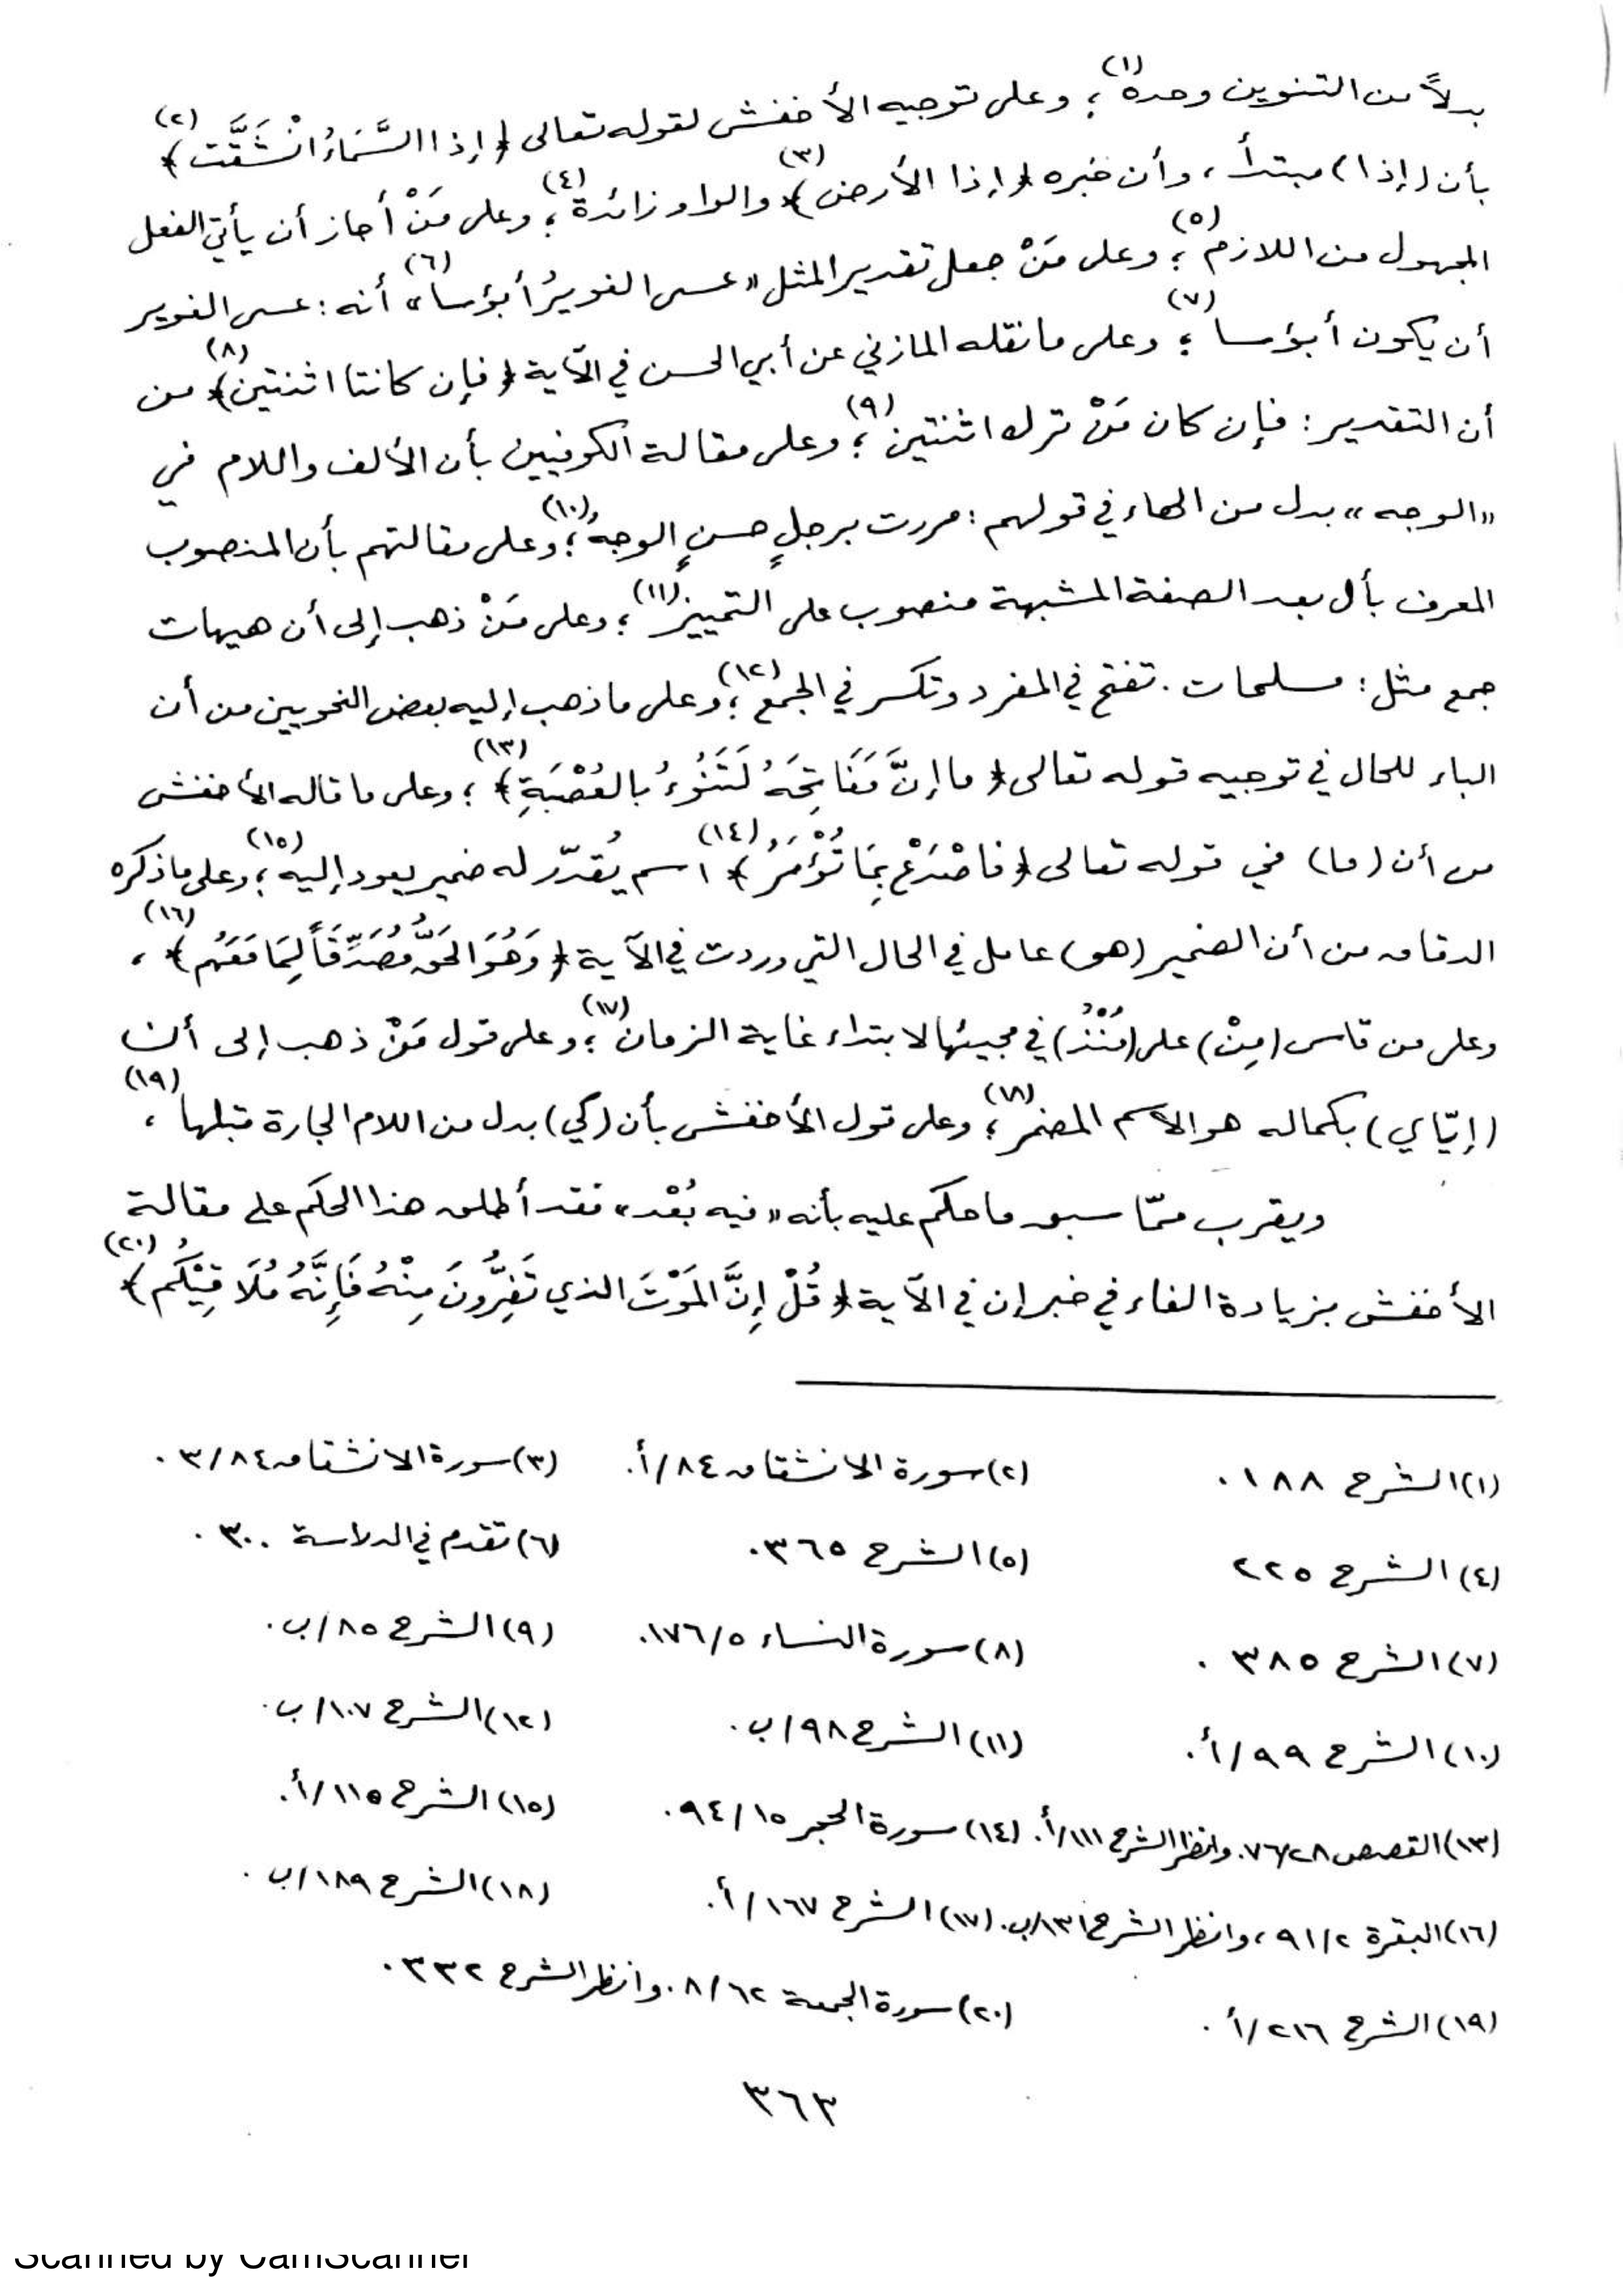 بدلاً من التنوين وحده(١)؛ وعلى توجيه الأخفش لقوله تعالى ﴿إذا السَّمَاءُ انْشَقَّت﴾(٢)
بأن (إذا) مبتدأ، وأن خبره ﴿إذا الأرض﴾(٣) والواو زائدة(٤)؛ وعلى مَنْ أجاز أن يأتي الفعل
المجهول من اللازم(٥)؛ وعلى مَنْ جعل تقدير المثل «عسى الغويرُ أبؤسا»(٦) أنه: عسى الغوير
أن يكون أبؤسا(٧)؛ وعلى ما نقله المازني عن أبي الحسن في الآية ﴿فإن كانتا اثنتين﴾(٨) من
أن التقدير: فإن كان مَنْ ترك اثنتين(٩)؛ وعلى مقالة الكوفيين بأن الألف واللام في
«الوجه» بدل من الهاء في قولهم: مررت برجلٍ حسنٍ الوجهُ(١٠)؛ وعلى مقالتهم بأن المنصوب
المعرف بأل بعد الصفة المشبهة منصوب على التمييز(١١)؛ وعلى مَنْ ذهب إلى أن هيهات
جمع مثل: مسلمات. تفتح في المفرد وتكسر في الجمع(١٢)؛ وعلى ما ذهب إليه بعض النحويين من أن
الباء للحال في توجيه قوله تعالى ﴿ما إنَّ مَفَاتِحَهُ لَتَنُوءُ بالعُصْبَةِ﴾(١٣)؛ وعلى ما قاله الأخفش
من أن (ما) في قوله تعالى ﴿فاصْدَعْ بِمَا تُؤْمَرُ﴾(١٤) اسم يُقدّر له ضمير يعود إليه(١٥)؛ وعلى ما ذكره
الدقاق من أن الضمير (هو) عامل في الحال التي وردت في الآية ﴿وَهُوَ الحَقُّ مُصَدِّقَاً لِمَا مَعَهُم﴾(١٦)،
وعلى من قاس (مِنْ) على (مُنْذُ) في مجيئها لابتداء غاية الزمان(١٧)؛ وعلى قول مَنْ ذهب إلى أن
(إيّاي) بكماله هو الاسم المضمر(١٨)؛ وعلى قول الأخفش بأن (كي) بدل من اللام الجارة قبلها(١٩)،
ويقرب ممّا سبق ما حكم عليه بأنه «فيه بُعْد» فقد أطلق هذا الحكم على مقالة
الأخفش بزيادة الفاء في خبر إن في الآية ﴿قُلْ إِنَّ المَوْتَ الذي تَفِرُّونَ مِنْهُ فَإِنَّهُ مُلَاقِيْكُم﴾(٢٠)
(١) الشرح ١٨٨. (٢) سورة الانشقاق ٨٤/أ. (٣) سورة الانشقاق ٣/٨٤.
(٤) الشرح ٢٢٥ (٥) الشرح ٣٦٥. (٦) تقدم في الدراسة ٣٠٠.
(٧) الشرح ٣٨٥. (٨) سورة النساء ١٧٦/٥. (٩) الشرح ٨٥/ب.
(١٠) الشرح ٩٩/أ. (١١) الشرح ٩٨/ب. (١٢) الشرح ١٠٧/ب.
(١٣) القصص ٧٦/٢٨. وانظر الشرح ١١١/أ. (١٤) سورة الحجر ٩٤/١٥. (١٥) الشرح ١١٥/أ.
(١٦) البقرة ٩١/٢، وانظر الشرح ١٣١/ب. (١٧) الشرح ١٦٧/أ. (١٨) الشرح ١٨٩/ب.
(١٩) الشرح ٢١٦/أ. (٢٠) سورة الجمعة ٨/٦٢. وانظر الشرح ٣٣٢.
٣٦٣
Scanned by CamScanner